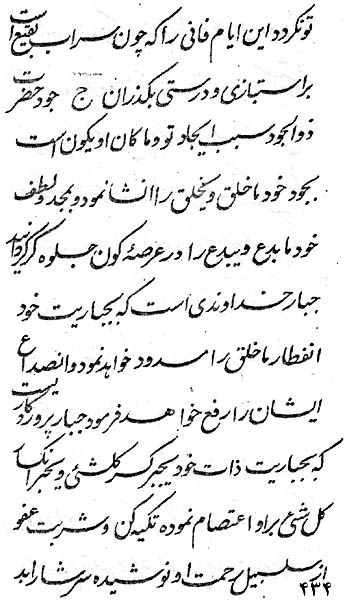 تو نکردد این ایام فانی را که چون سراب بقیع است
براستبازی و درستی بگذران ج جود حضرت
ذوالجود سبب ایجاد تو و ما کان او یکون است
بجود خود ما خلق و یخلق را انشا نمود و بمجد و لطف
خود ما بدع و یبدع را در عرصهٔ کون جلوه گر گردانید
جبار خداوندی است که بجباریت خود
انفطار ما خلق را مسدود خواهد نمود و انصداع
ایشان را رفع خواهد فرمود جبار پروردگاریست
که بجباریت ذات خود یجبر کسر کلشئی و یجبر انکسار
کل شئ بر او اعتصام نموده تکیه کن و شربت عفو
از سلسبیل رحمت او نوشیده سرشار ابد
۴۳۴